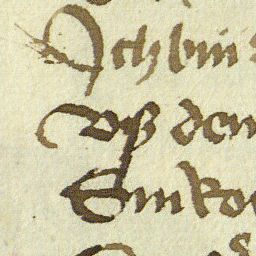 Ich bin
Vß den
Ein ko